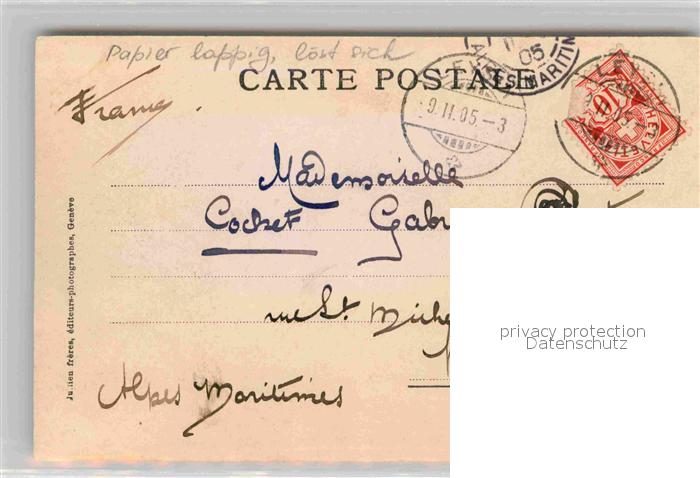 Papier lappig, löst sich
CARTE POSTALE
France
9.II.05.-3
05
MARITIM
10
HELVETIA
Mademoiselle
Cocket Gab
rue St. Miche
Alpes Maritimes
Jullien frères, éditeurs-photographes, Genève
privacy protection
Datenschutz